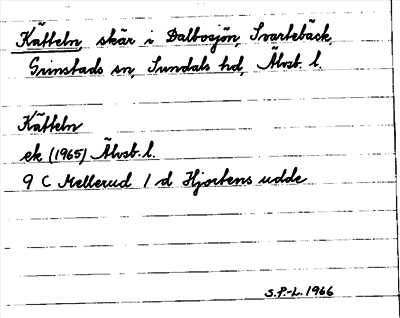 Kätteln, skär i Dalbosjön, Svartebäck,
Grinstads sn, Sundals hd, Älvsb. l.
Kätteln
ek (1965) Älvsb. l.
9 C Mellerud 1 d Hjortens udde
S.P.-L. 1966